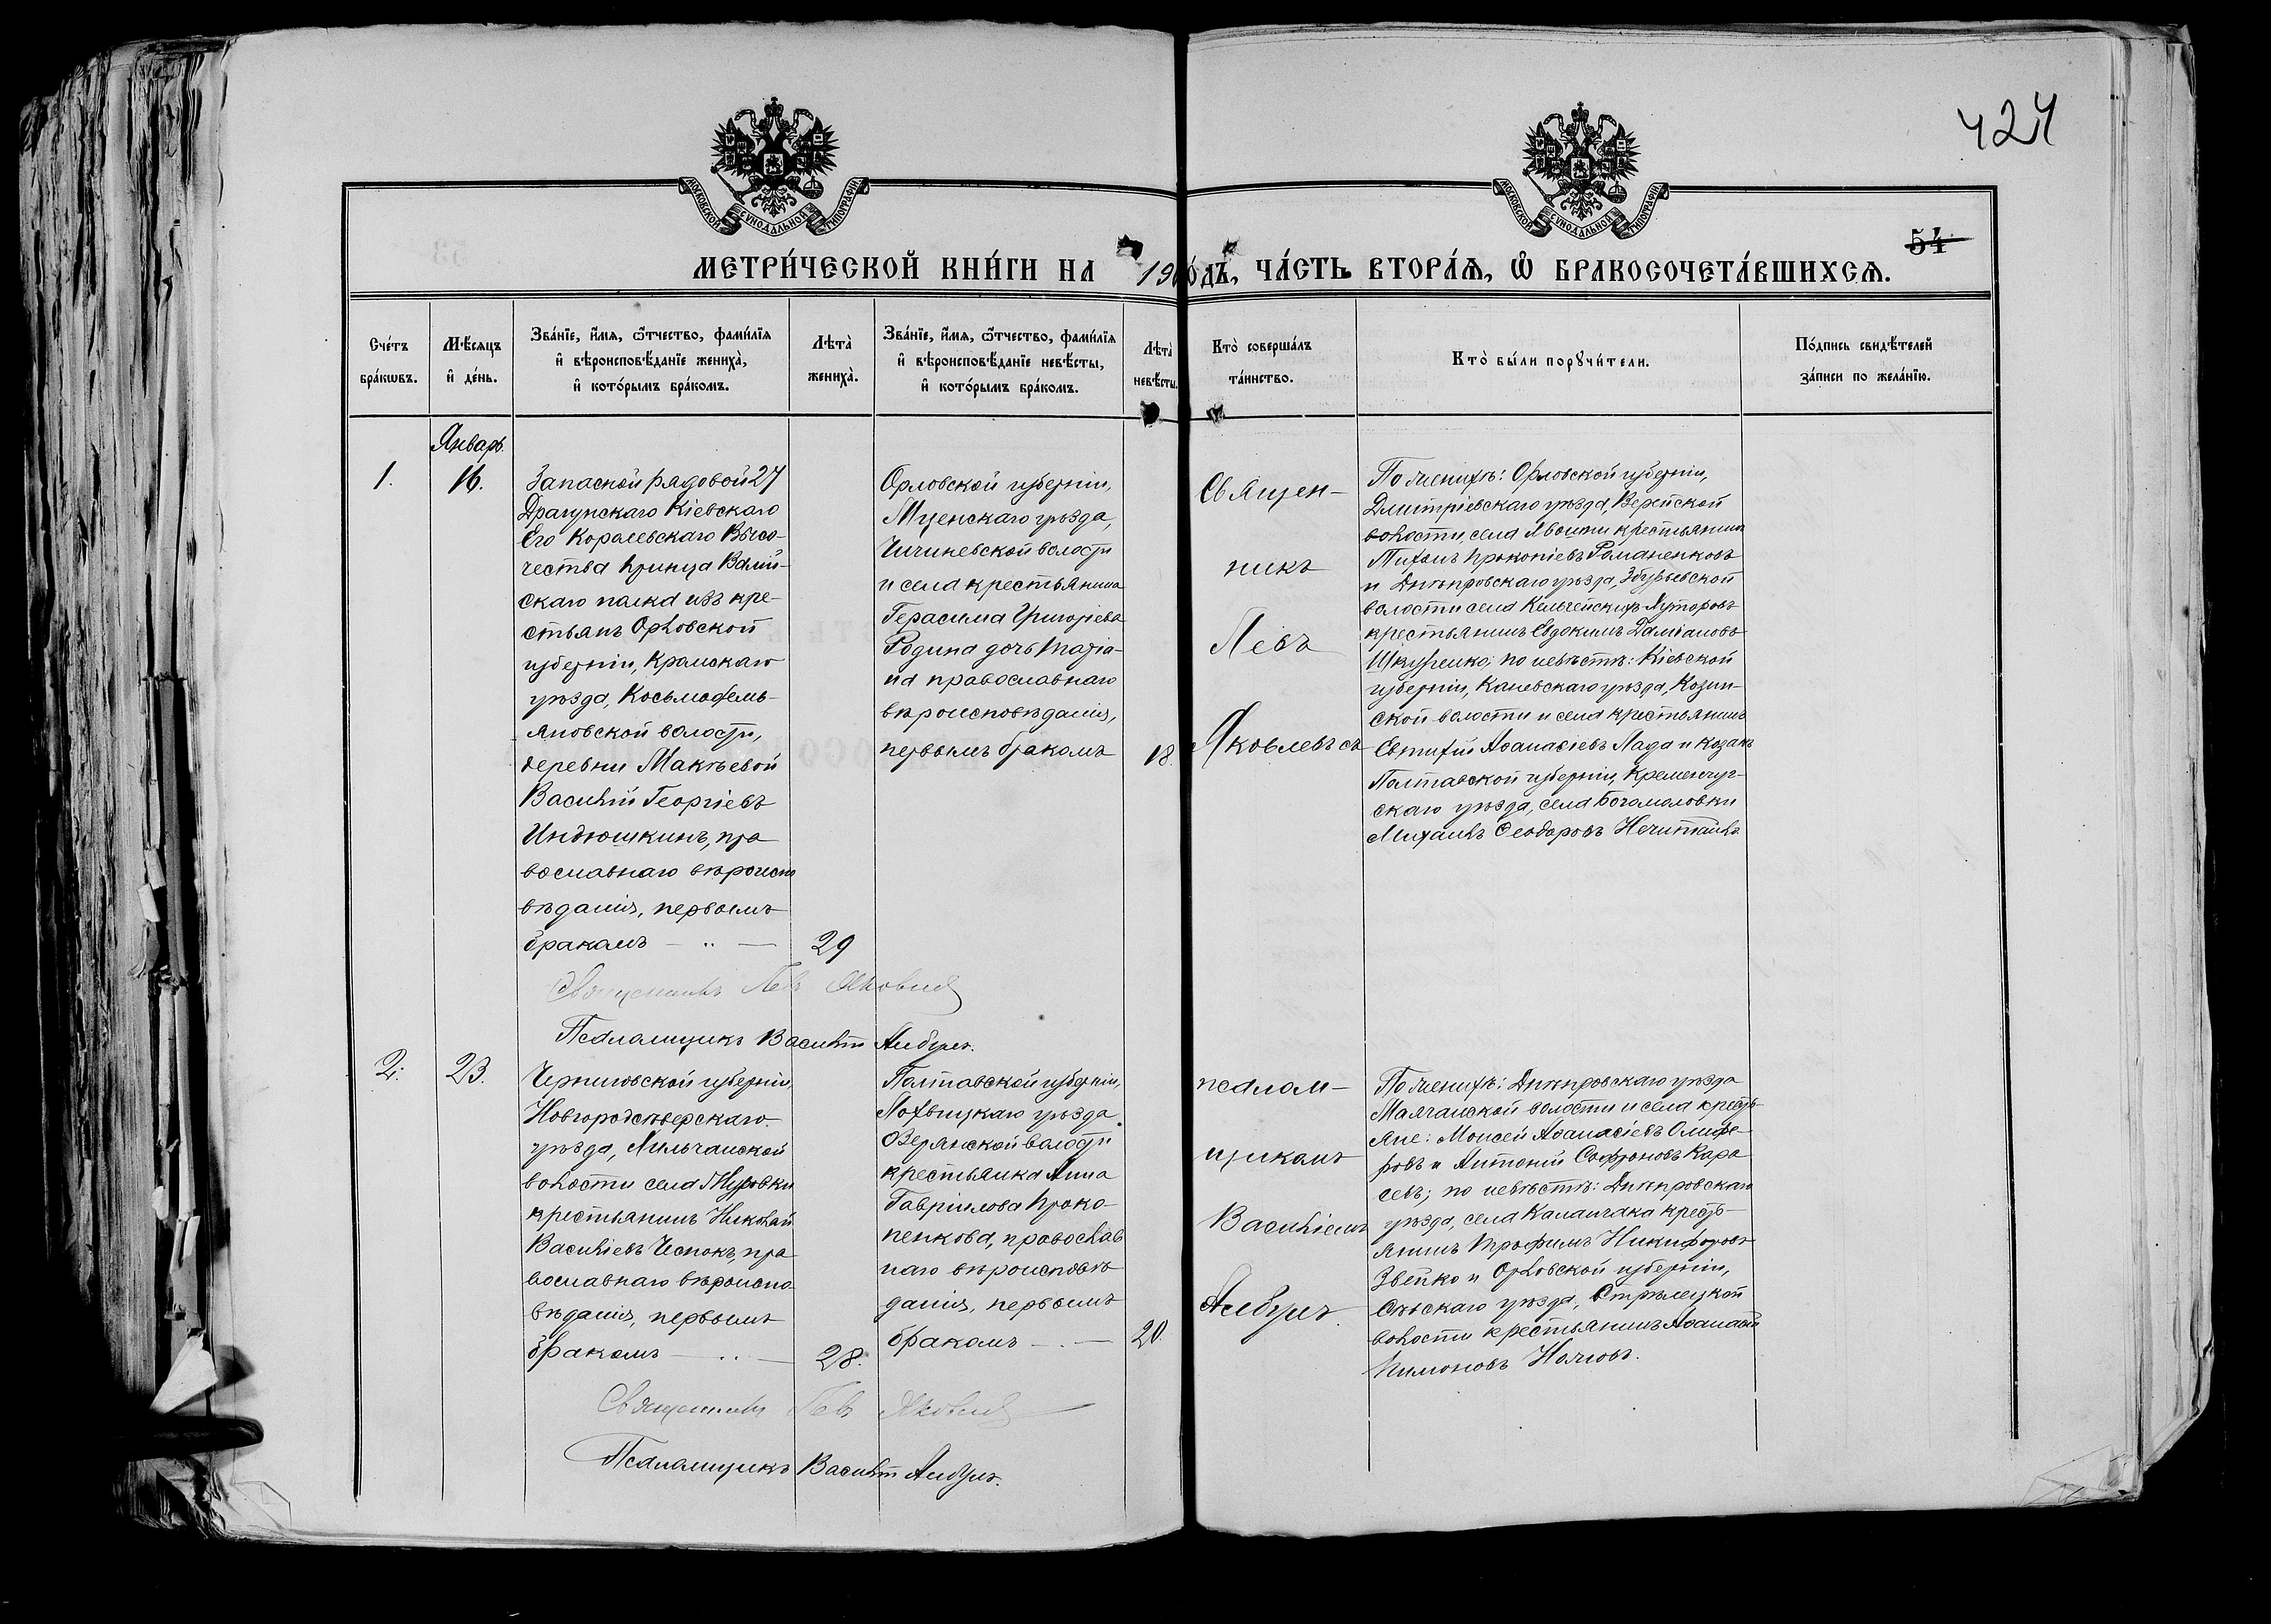 424
54
МОСКОВСКОЙ СУНОДАЛЬНОЙ ТИПОГРАФІИ
МОСКОВСКОЙ СУНОДАЛЬНОЙ ТИПОГРАФІИ
МЕТРИ́ЧЕСКОЙ КНИ́ГИ НА 190 ГО́ДЪ, ЧА́СТЬ ВТОРА́Ѧ, Ѽ БРАКОСОЧЕТА́ВШИХСѦ.
Сче́тъ
бра́кѡвъ.
Мѣ́сѧцъ
и҆ де́нь.
Зва́нїе, и҆́мѧ, ѻ҆́тчество, фами́лїѧ
и҆ вѣроисповѣ́данїе жениха̀,
и҆ кото́рымъ бра́комъ.
Лѣта̀
жениха̀.
Зва́нїе, и҆́мѧ, ѻ҆́тчество, фами́лїѧ
и҆ вѣроисповѣ́данїе невѣ́сты,
и҆ кото́рымъ бра́комъ.
Лѣта̀
невѣ́сты.
Кто̀ соверша́лъ
та́инство.
Кто̀ бы́ли порꙋчи́тели.
По́дпись свидѣ́телей
за́писи по жела́нїю.
Январь.
1.
16.
Запасной рядовой 27
Драгунскаго Кіевскаго
Его Королевскаго Высо-
чества Принца Валій-
скаго полка изъ кре-
стьянъ Орловской
губерніи, Кромскаго
уѣзда, Косьмодемь-
яновской волости,
деревни Макѣевой
Василій Георгіевъ
Индюшкинъ, пра
вославнаго вѣроиспо
вѣданія, первымъ
бракомъ
29
Орловской губерніи,
Мценскаго уѣзда,
волости
и села крестьянина
Герасима Григорьева
Родина дочь Марiа-
на православнаго
вѣроисповѣданія,
первымъ бракомъ
18.
Священ-
никъ
Левъ
Яковлевъ съ
По женихѣ: Орловской губерніи,
Дмитріевскаго уѣзда,
волости, села крестьянинъ
Прокопіевъ Романенковъ
и Днѣпровскаго уѣзда, Збурьевской
волости села Келегейскихъ Хуторовъ
крестьянинъ Евдокимъ Даміановъ
Шкуренко; по невѣстѣ: Кіевской
губерніи, Каневскаго уѣзда, Козин-
ской волости и села крестьянинъ
Евтихій Аѳанасіевъ Лада и козакъ
Полтавской губерніи, Кременчуг-
скаго уѣзда, села Богомоловки
Михаилъ Ѳеодоровъ Нечитайлъ
Священникъ Левъ Яковлев
Псаломщикъ Василій
2.
23.
Черниговской губерніи,
Новгородсѣверскаго
уѣзда,
волости села Журовки
крестьянинъ Николай
Василіевъ Чеснокъ, пра
вославнаго вѣроиспо
вѣданія, первымъ
бракомъ
28.
Полтавской губерніи,
Лохвицкаго уѣзда
Озерянской волости
крестьянка Анна
Гавріилова Проко-
пенкова, православ
наго вѣроисповѣ
данія, первымъ
бракомъ
20.
псалом-
щикомъ
Василіемъ
По женихѣ: Днѣпровскаго уѣзда
Маячанской волости и села кресть
яне: Моисей Аѳанасіевъ Олифе-
ровъ и Антоній Софроновъ Кара
севъ; по невѣстѣ: Днѣпровскаго
уѣзда, села Каланчака кресть-
янинъ Трофимъ Никифоровъ
Звейко и Орловской губерніи,
Сѣвскаго уѣзда, Стрѣлецкой
волости крестьянинъ Аѳанасій
Пимоновъ
Священникъ Левъ Яковлев
Псаломщикъ Василій